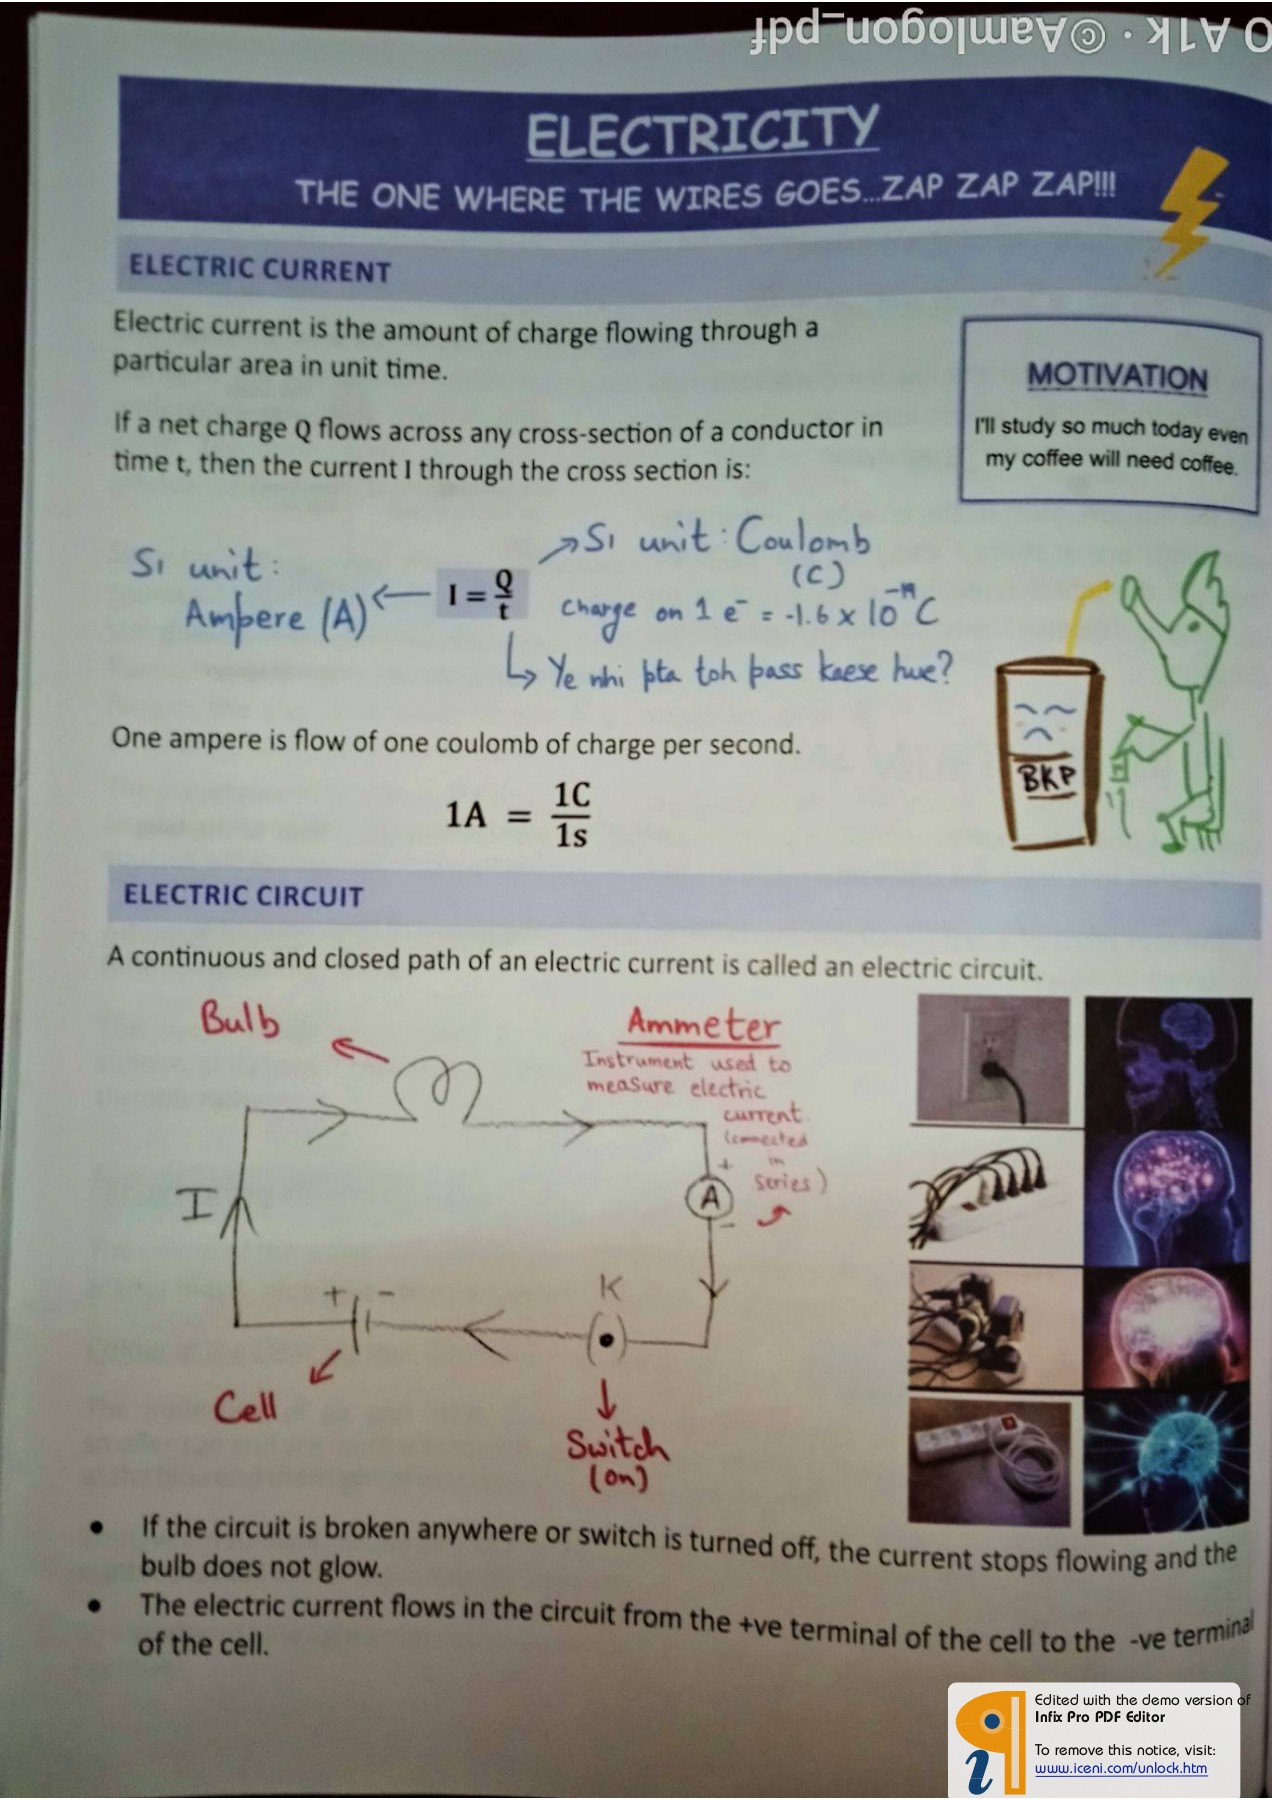 O A1k · ©Aamlogon_pdf
ELECTRICITY
THE ONE WHERE THE WIRES GOES...ZAP ZAP ZAP!!!
ELECTRIC CURRENT
Electric current is the amount of charge flowing through a
particular area in unit time.
MOTIVATION
I'll study so much today even
my coffee will need coffee.
If a net charge Q flows across any cross-section of a conductor in
time t, then the current I through the cross section is:
SI unit:
Ampere (A)
I = Q/t
SI unit: Coulomb
(C)
Charge on 1 e⁻ = -1.6 x 10⁻¹⁹ C
Ye nhi pta toh pass kaese hue?
BKP
One ampere is flow of one coulomb of charge per second.
1A = 1C/1s
ELECTRIC CIRCUIT
A continuous and closed path of an electric current is called an electric circuit.
Bulb
Ammeter
Instrument used to
measure electric
current
(connected
in
series)
+
A
-
I
K
+ -
Cell
Switch
(on)
• If the circuit is broken anywhere or switch is turned off, the current stops flowing and the
bulb does not glow.
• The electric current flows in the circuit from the +ve terminal of the cell to the -ve terminal
of the cell.
Edited with the demo version of
Infix Pro PDF Editor
To remove this notice, visit:
www.iceni.com/unlock.htm